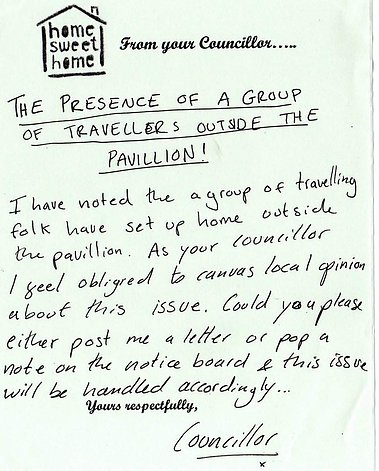 home
sweet
home
From your Councillor.....
THE PRESENCE OF A GROUP
OF TRAVELLERS OUTSIDE THE
PAVILLION!
I have noted the a group of travelling
folk have set up home outside
the pavillion. As your councillor
I feel obligred to canvas local opinion
about this issue. Could you please
either post me a letter or pop a
note on the notice board & this issue
will be handled accordingly...
Yours respectfully,
Councillor
x